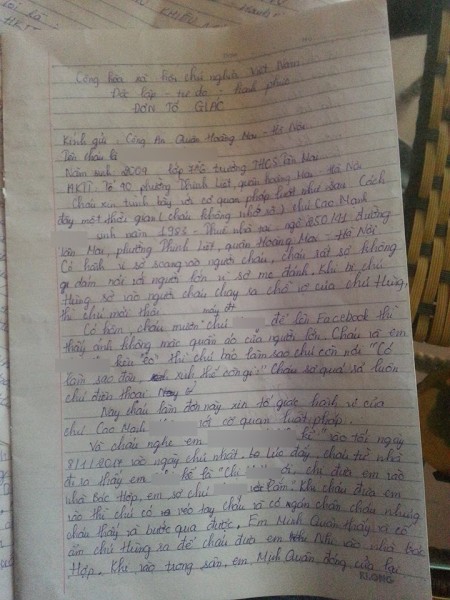 Cộng hòa xã hội chủ nghĩa Việt Nam
Độc lập - tự do - hạnh phúc
ĐƠN TỐ GIÁC
Kính gửi: Công An Quận Hoàng Mai - Hà Nội
Tên cháu là
Năm sinh 2004 lớp trường THCS Tân Mai
HKTT: Tổ 90 phường Thịnh Liệt, quận hoàng mai - Hà Nội
Cháu xin trình bày với cơ quan pháp luật như sau. Cách
đây một thời gian (cháu không nhớ rõ) thì Cao Mạnh
sinh năm 1983 - Thuê nhà tại ngõ 250 đường
Tân Mai, phường Thịnh Liệt, quận Hoàng Mai - Hà Nội
Có hành vi sờ soạng vào người cháu, cháu rất sợ không
dám nói với người lớn vì sợ mẹ đánh. Khi bị chú
Hưng sờ vào người cháu chạy ra chỗ vợ của chú Hưng,
thì chú mới thôi
Có hôm, cháu mượn chú máy đt để lên Facebook thì
thấy ảnh không mặc quần áo của người lớn. Cháu và em
kêu "eo" thì chú bảo làm sao chú còn nói "Có
làm sao đâu, xinh thế còn gì" Cháu sợ quá
chú điện thoại
Nay cháu làm đơn này xin tố giác hành vi của
chú Cao Mạnh với cơ quan luật pháp.
Và cháu nghe em kể vào tối ngày
8/1/2017 vào ngày chủ nhật. Lúc đấy, cháu từ nhà
đi ra thấy em kể là "Chị ơi, chị đưa em vào
nhà Bác Hợp, em sợ chú Dâm". Khi cháu đưa em
vào thì chú có tay cháu và có ngăn chân cháu nhưng
cháu thấy và bước qua được. Em Minh Quân thấy và có
ấm chú Hưng ra để cháu đưa em vào nhà Bác
Hợp. Khi vào trong sân, em Minh Quân đóng cửa lại
KLONG